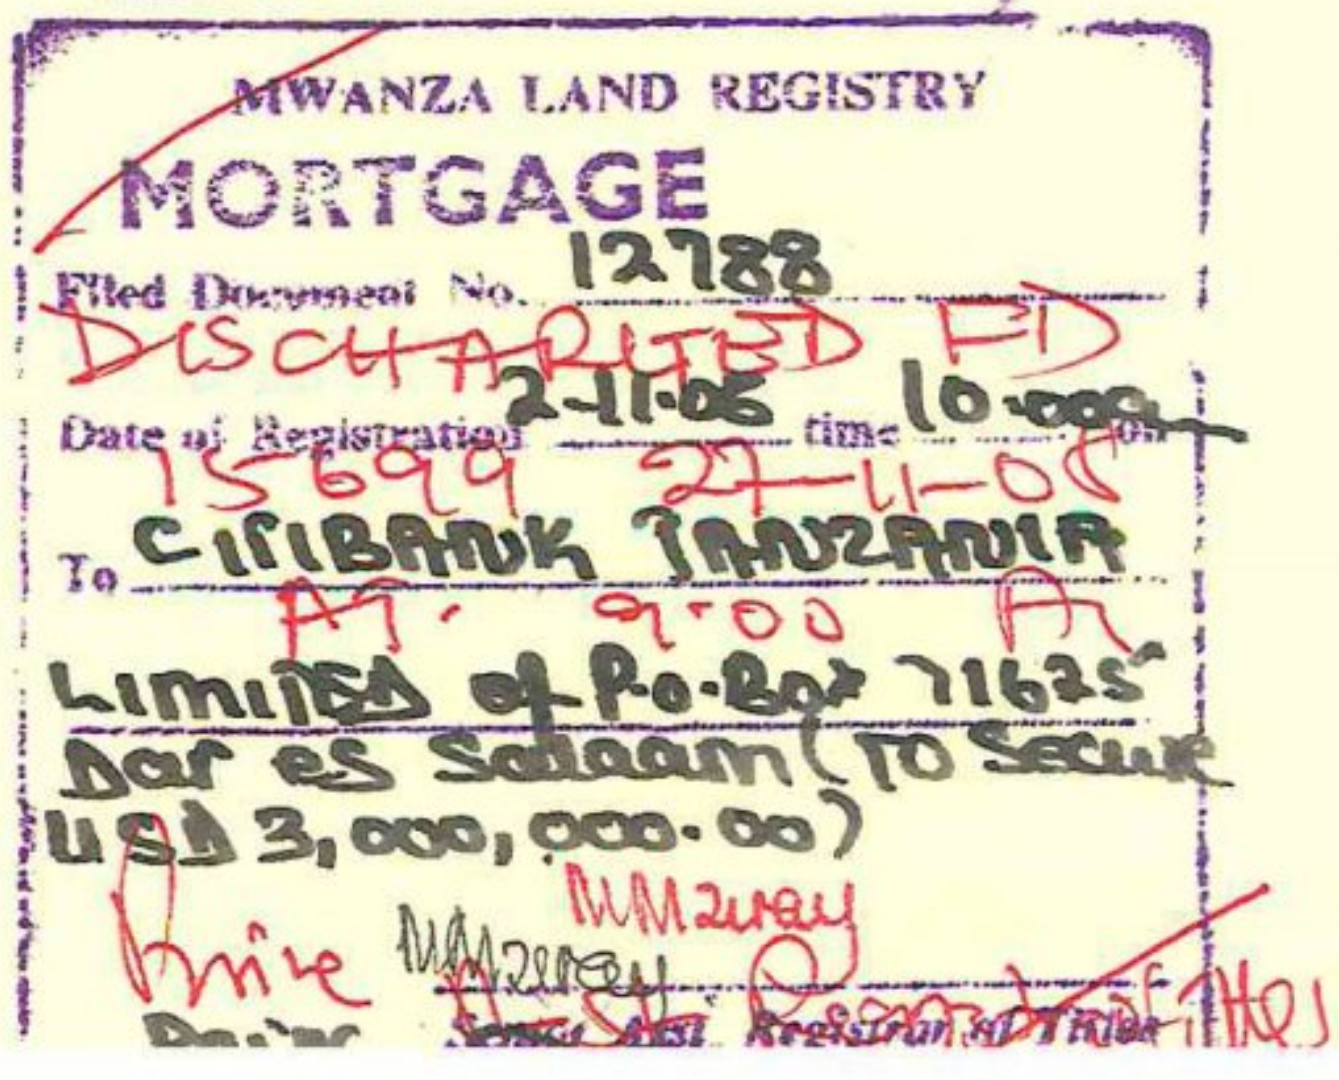 MWANZA LAND REGISTRY
MORTGAGE
Filed Document No. 12788
DISCHARGED FD
Date of Registration 2-11-06 time 10.00am on
15699 27-11-08
To CITIBANK TANZANIA
AT. 9.00 A
LIMITED of P.O.Box 71625
Dar es Salaam (TO Secure
USD 3,000,000.00)
Senior Asst. Registrar of Titles